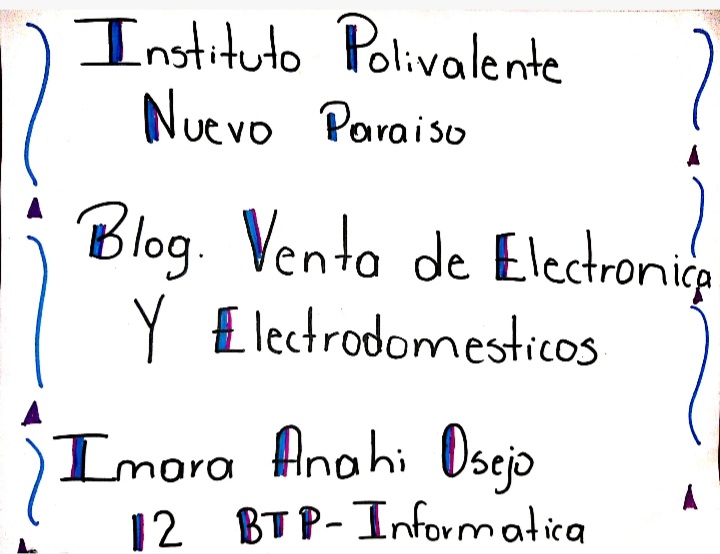 Instituto Polivalente
Nuevo Paraiso
Blog. Venta de Electronica
Y Electrodomesticos
Imara Anahi Osejo
12 BTP-Informatica